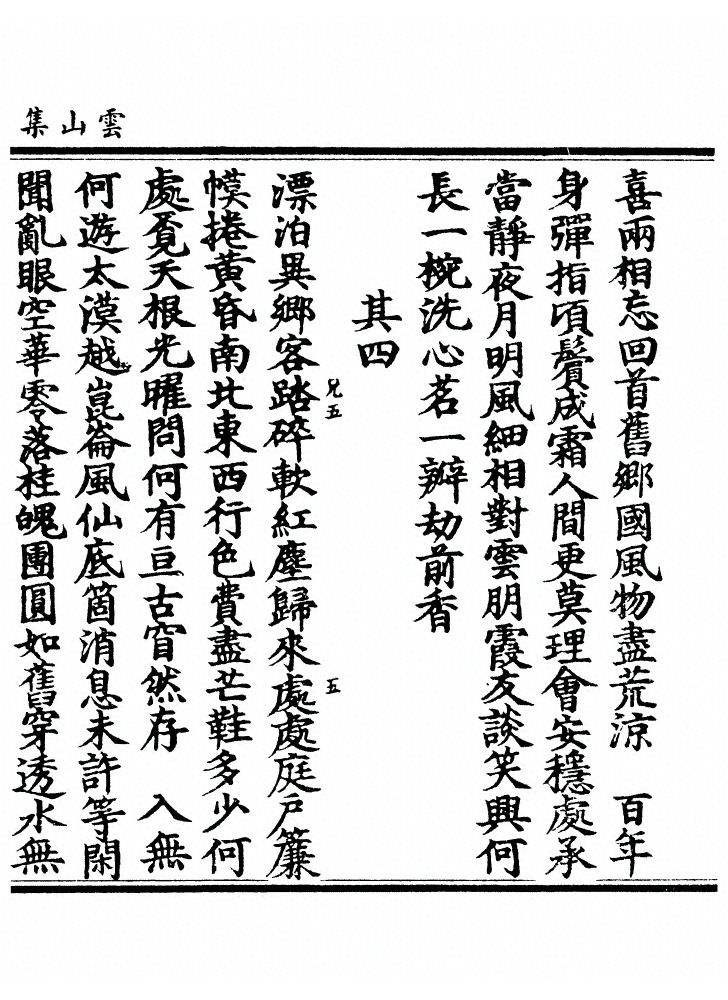 雲山集
喜兩相忘回首舊鄉國風物盡荒涼　百年
身彈指頃鬢成霜人間更莫理會安穩處承
當靜夜月明風細相對雲朋霞友談笑興何
長一椀洗心茗一瓣劫前香
其四
漂泊異鄉客踏碎軟紅塵歸來處處庭戶簾
兄五
五
幙捲黃昏南北東西行色費盡芒鞋多少何
處覔天根光曜問何有亘古窅然存　入無
何遊太漠越崑崙風仙底箇消息未許等閑
聞亂眼空華零落桂魄團圓如舊穿透水無